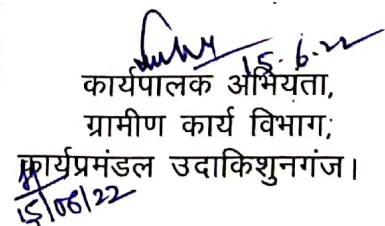 15.6.22
कार्यपालक अभियंता,
ग्रामीण कार्य विभाग,
कार्यप्रमंडल उदाकिशुनगंज।
15/06/22